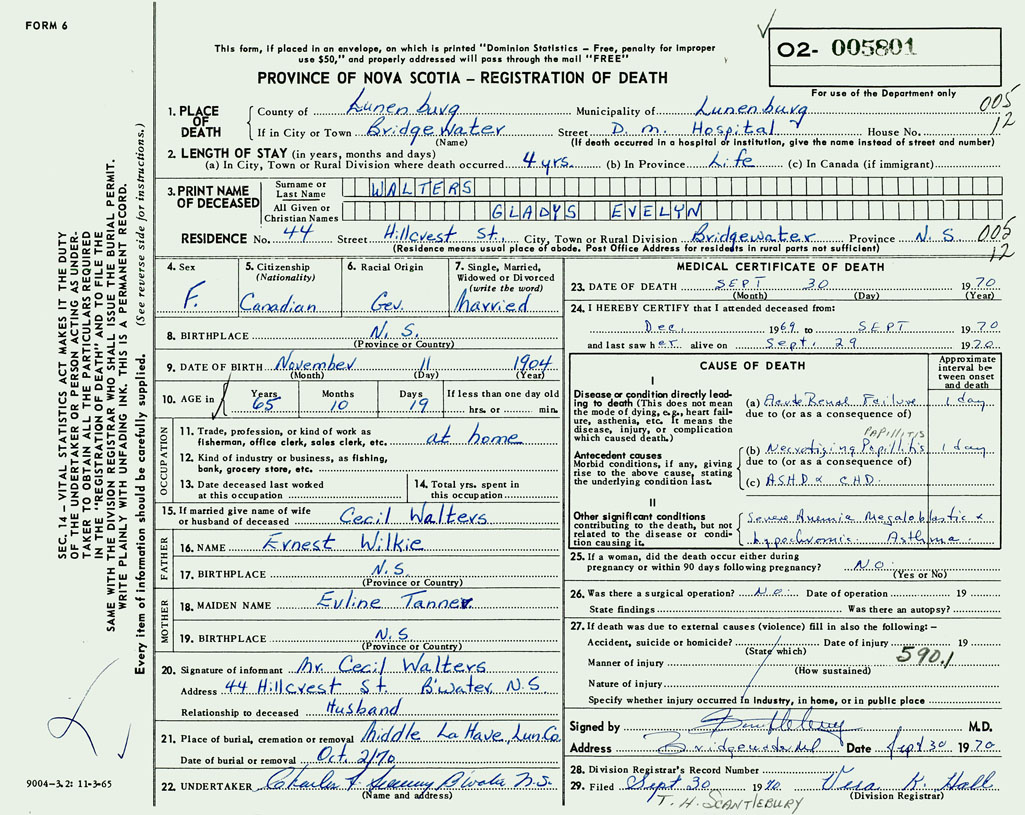 FORM 6
This form, if placed in an envelope, on which is printed "Dominion Statistics – Free, penalty for improper
use $50," and properly addressed will pass through the mail "FREE"
02- 005801
For use of the Department only
PROVINCE OF NOVA SCOTIA – REGISTRATION OF DEATH
005
12
1. PLACE OF DEATH
County of Lunenburg Municipality of Lunenburg
If in City or Town Bridgewater Street D. M. Hospital House No.
(Name) (If death occurred in a hospital or institution, give the name instead of street and number)
2. LENGTH OF STAY (in years, months and days)
(a) In City, Town or Rural Division where death occurred 4 yrs. (b) In Province Life (c) In Canada (if immigrant)
3. PRINT NAME OF DECEASED
Surname or Last Name WALTERS
All Given or Christian Names GLADYS EVELYN
RESIDENCE No. 44 Street Hillcrest St., City, Town or Rural Division Bridgewater Province N. S
(Residence means usual place of abode. Post Office Address for residents in rural parts not sufficient)
005
12
4. Sex
F.
5. Citizenship
(Nationality)
Canadian
6. Racial Origin
Ger.
7. Single, Married,
Widowed or Divorced
(write the word)
Married
8. BIRTHPLACE N. S.
(Province or Country)
9. DATE OF BIRTH November 11 1904
(Month) (Day) (Year)
10. AGE in Years Months Days If less than one day old
65 10 19 hrs. or min.
OCCUPATION
11. Trade, profession, or kind of work as
fisherman, office clerk, sales clerk, etc. at home
12. Kind of industry or business, as fishing,
bank, grocery store, etc.
13. Date deceased last worked
at this occupation
14. Total yrs. spent in
this occupation
15. If married give name of wife
or husband of deceased Cecil Walters
FATHER
16. NAME Ernest Wilkie
17. BIRTHPLACE N. S
(Province or Country)
MOTHER
18. MAIDEN NAME Evline Tanner
19. BIRTHPLACE N. S
(Province or Country)
20. Signature of informant Mr. Cecil Walters
Address 44 Hillcrest St. B'water N.S
Relationship to deceased Husband
21. Place of burial, cremation or removal Middle La Have, Lun Co.
Date of burial or removal Oct. 2/70
22. UNDERTAKER Charles B'water N.S.
(Name and address)
MEDICAL CERTIFICATE OF DEATH
23. DATE OF DEATH SEPT 30 1970
(Month) (Day) (Year)
24. I HEREBY CERTIFY that I attended deceased from:
Dec. 1969 to SEPT 1970
and last saw her alive on Sept. 29 1970
CAUSE OF DEATH
Approximate
interval be-
tween onset
and death
I
Disease or condition directly lead-
ing to death (This does not mean
the mode of dying, e.g., heart fail-
ure, asthenia, etc. It means the
disease, injury, or complication
which caused death.)
(a) Acute Renal Failure 1 day
due to (or as a consequence of)
PAPILLITIS
Antecedent causes
Morbid conditions, if any, giving
rise to the above cause, stating
the underlying condition last.
(b) Necrotizing Papillitis 1 day
due to (or as a consequence of)
(c) ASHD & CHD
II
Other significant conditions
contributing to the death, but not
related to the disease or condi-
tion causing it.
Severe Anemia Megaloblastic &
hypochromic. Asthma.
25. If a woman, did the death occur either during
pregnancy or within 90 days following pregnancy? NO
(Yes or No)
26. Was there a surgical operation? No. Date of operation 19
State findings Was there an autopsy?
27. If death was due to external causes (violence) fill in also the following: –
Accident, suicide or homicide? Date of injury 19
(State which)
590.1
Manner of injury
(How sustained)
Nature of injury
Specify whether injury occurred in industry, in home, or in public place
Signed by M.D.
Address Bridgewater Date Sept 30 1970
28. Division Registrar's Record Number
29. Filed Sept 30 1970 Vera K. Hall
(Division Registrar)
T. H. SCANTLEBURY
SEC. 14 – VITAL STATISTICS ACT MAKES IT THE DUTY
OF THE UNDERTAKER OR PERSON ACTING AS UNDER-
TAKER TO OBTAIN ALL THE PARTICULARS REQUIRED
IN THE "REGISTRATION OF DEATH" AND TO FILE THE
SAME WITH THE DIVISION REGISTRAR WHO SHALL ISSUE THE BURIAL PERMIT.
WRITE PLAINLY WITH UNFADING INK. THIS IS A PERMANENT RECORD.
Every item of information should be carefully supplied. (See reverse side for instructions.)
9004–3.2: 11-3-65